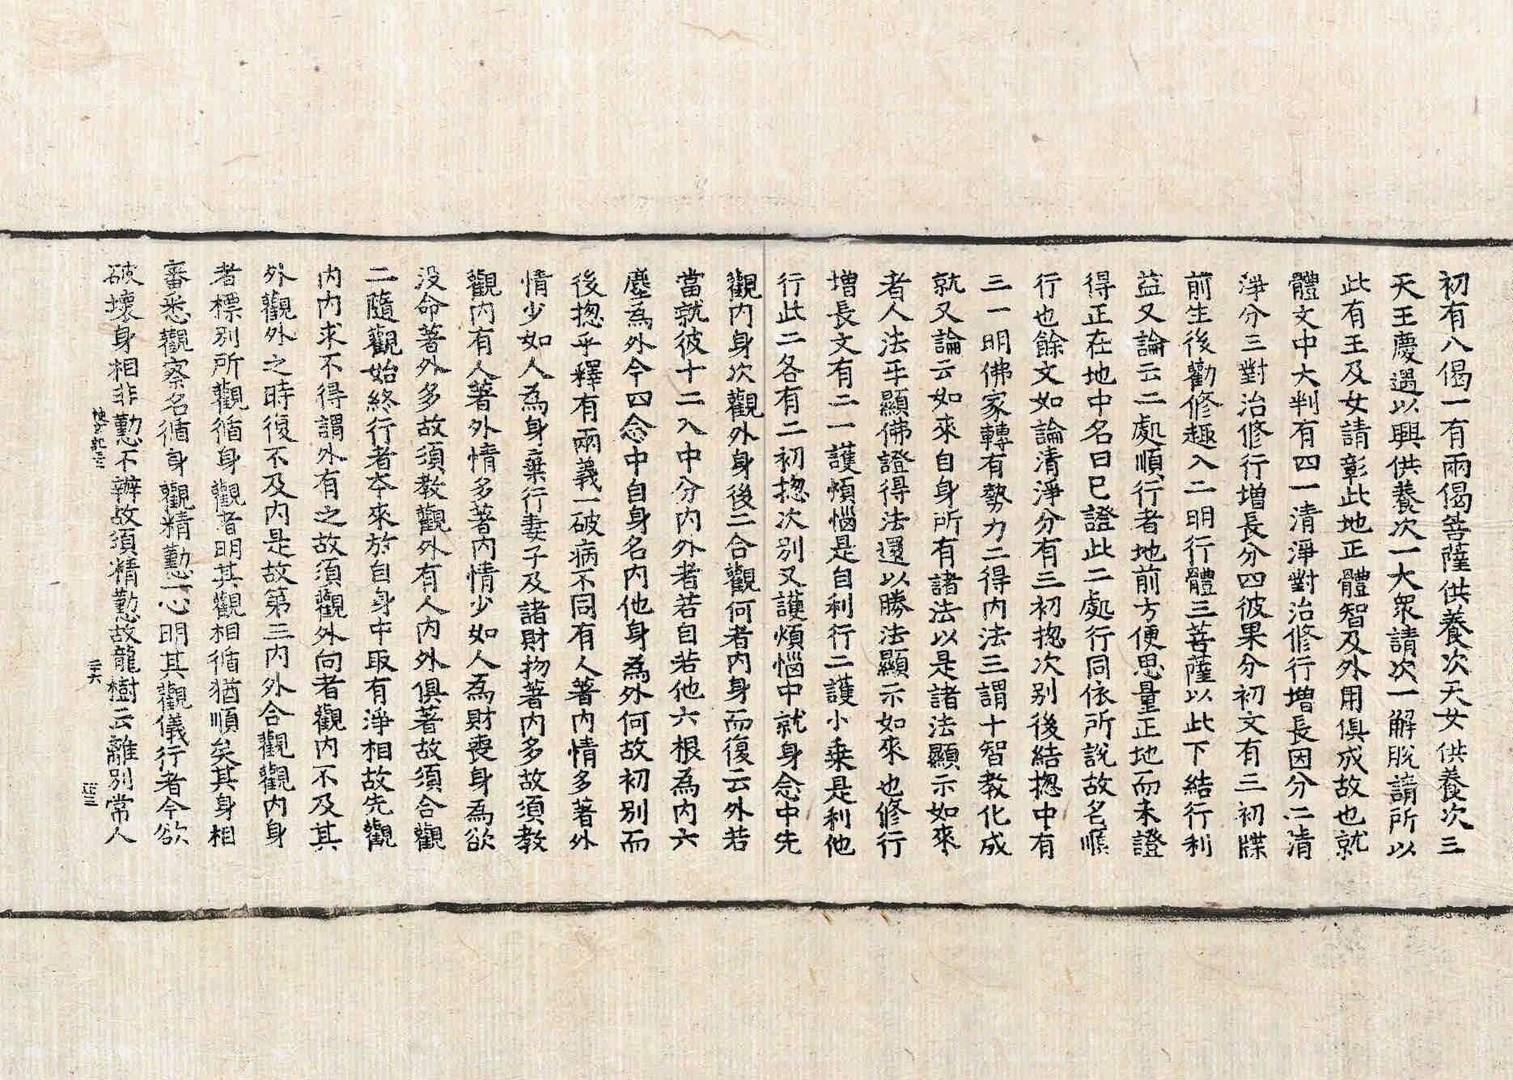 初有八偈一有兩偈菩薩供養次天女供養次三
天王慶遇以興供養次一大衆請次一解脫請所以
此有王及女請彰此地正體智及外用俱成故也就
體文中大判有四一清淨對治修行增長因分二清
淨分三對治修行增長分四彼果分初文有三初牒
前生後勸修趣入二明行體三菩薩以此下結行利
益又論云二處順行者地前方便思量正地而未證
得正在地中名曰已證此二處行同依所說故名順
行也餘文如論清淨分有三初揔次別後結揔中有
三一明佛家轉有勢力二得內法三謂十智教化成
就又論云如來自身所有諸法以是諸法顯示如來
者人法平顯佛證得法還以勝法顯示如來也修行
增長文有二一護煩惱是自利行二護小乘是利他
行此二各有二初揔次別又護煩惱中就身念中先
觀內身次觀外身後三合觀何者內身而復云外若
當就彼十二入中分內外者若自若他六根為內六
塵為外今四念中自身名內他身為外何故初別而
後揔乎釋有兩義一破病不同有人著內情多著外
情少如人為身棄行妻子及諸財物著內多故須教
觀內有人著外情多著內情少如人為財喪身為欲
沒命著外多故須教觀外有人內外俱著故須合觀
二隨觀始終行者本來於自身中取有淨相故先觀
內內求不得謂外有之故須觀外向者觀內不及其
外觀外之時復不及內是故第三內外合觀觀內身
者標別所觀循身觀者明其觀相循猶順矣其身相
審悉觀察名循身觀精懃一心明其觀儀行者今欲
破壞身相非懃不辦故須精懃故龍樹云離別常人